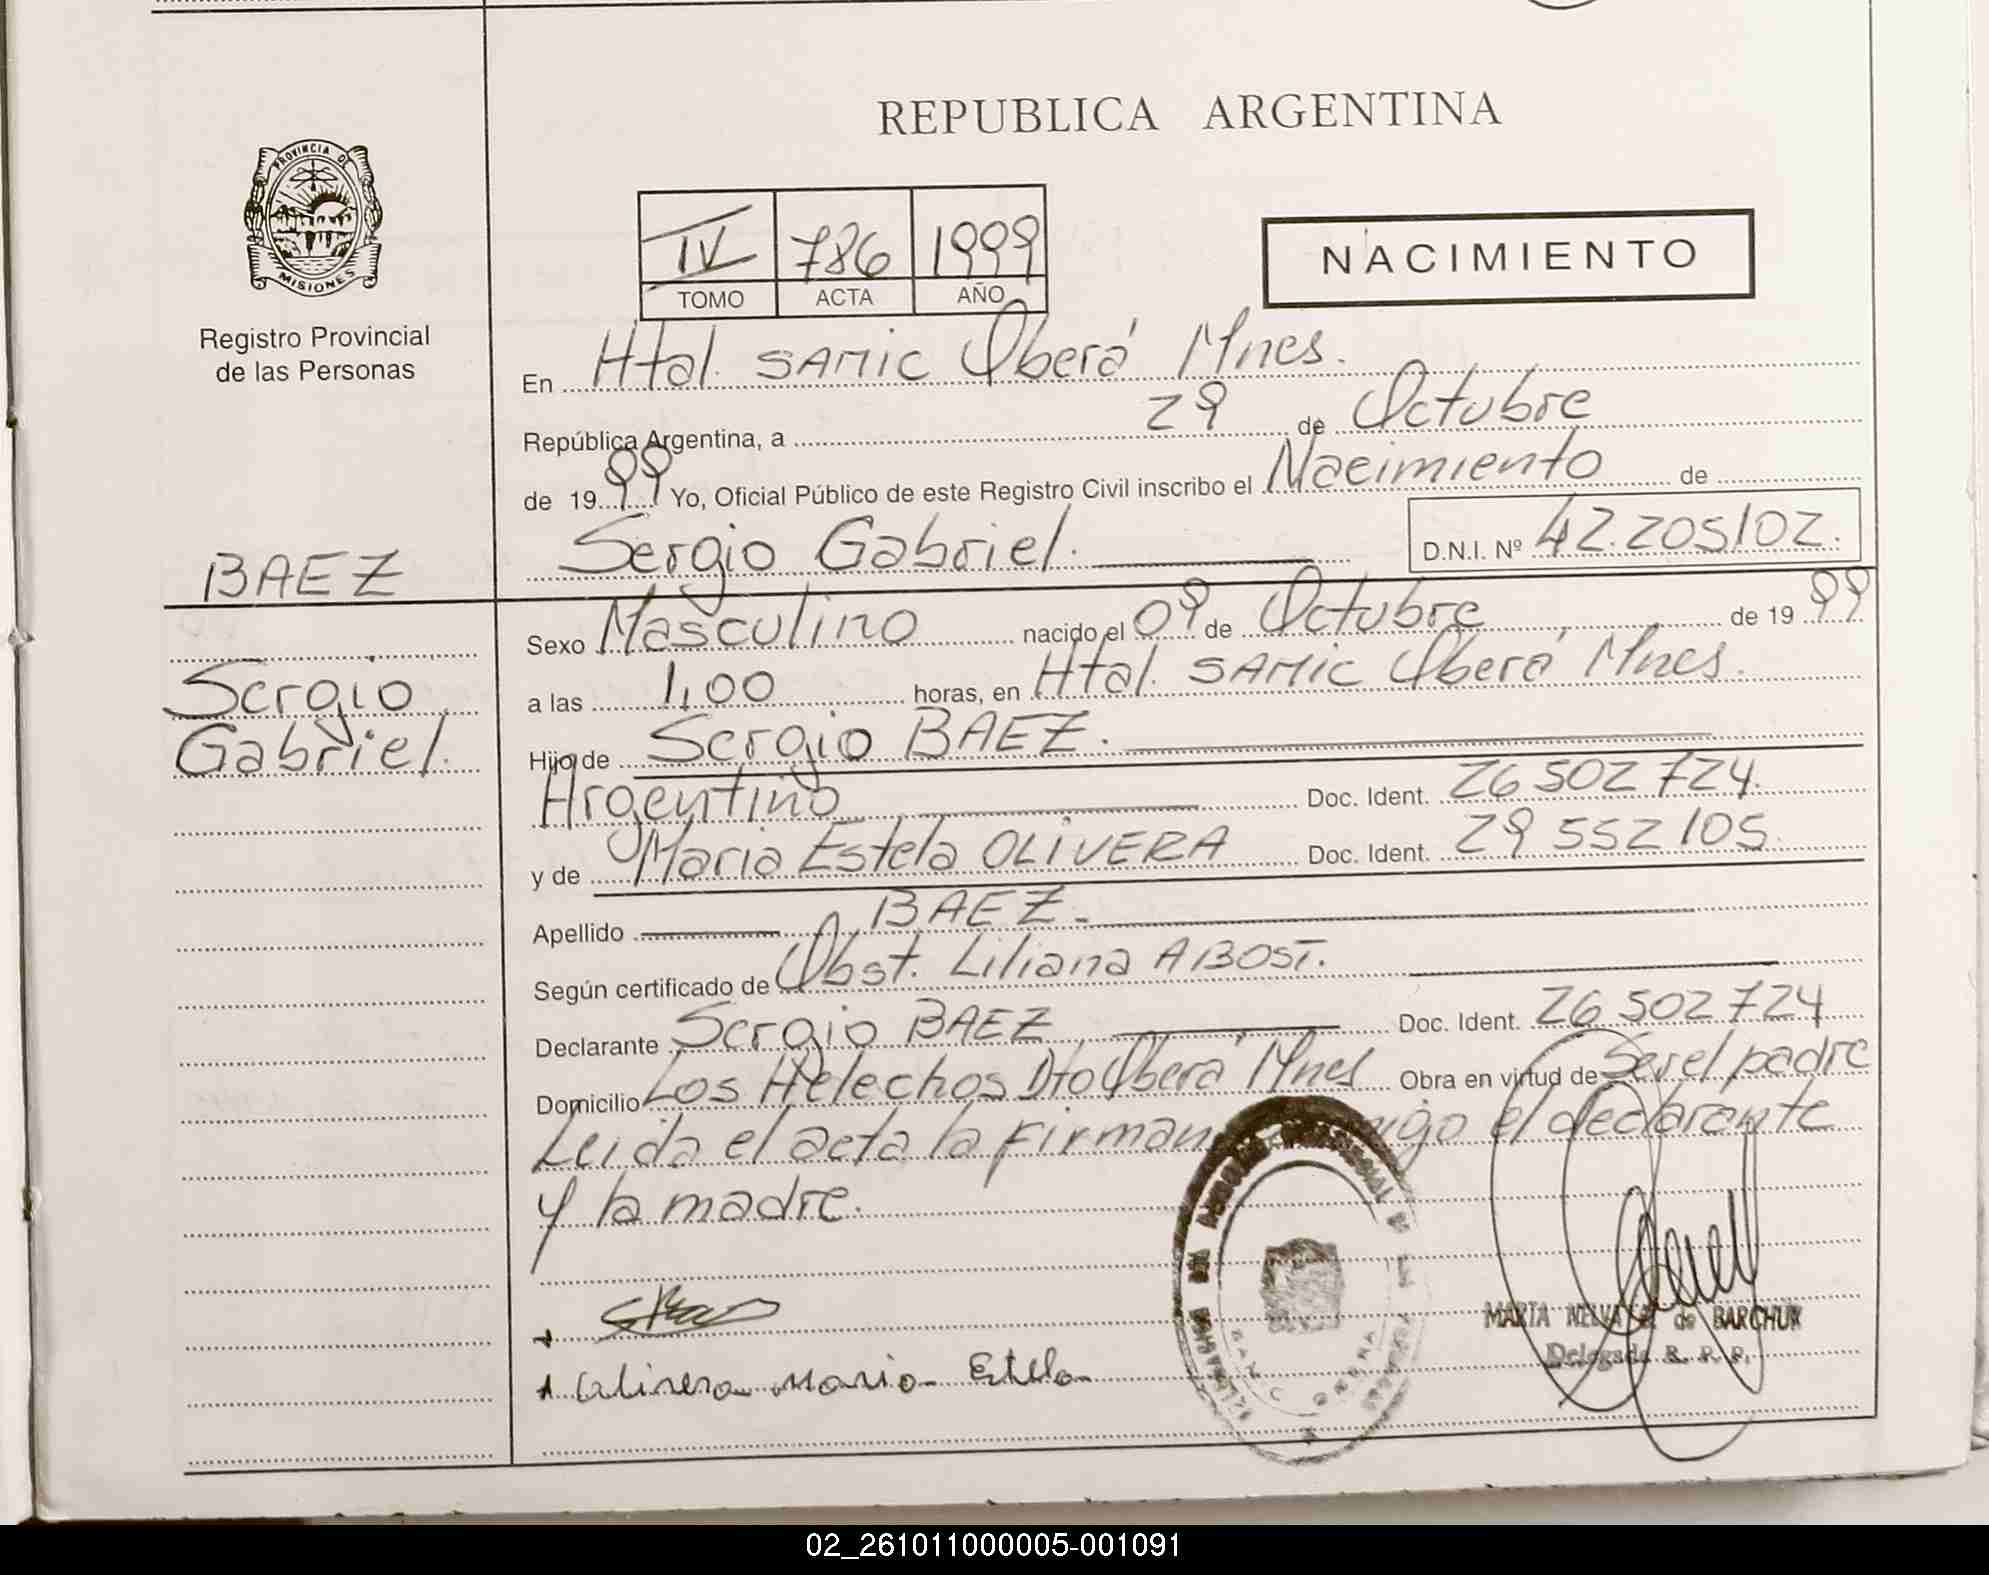 REPUBLICA ARGENTINA
PROVINCIA DE
MISIONES
Registro Provincial
de las Personas
IV 786 1999
TOMO ACTA AÑO
NACIMIENTO
En Htal. SAMIC Oberá Mnes.
República Argentina, a 29 de Octubre
de 1999 Yo, Oficial Público de este Registro Civil inscribo el Nacimiento de
Sergio Gabriel. D.N.I. Nº 42.205102.
BAEZ
Sergio
Gabriel.
Sexo Masculino nacido el 09 de Octubre de 1999
a las 1,00 horas, en Htal. SAMIC Oberá Mnes.
Hijo de Sergio BAEZ.
Argentino Doc. Ident. 26502724.
y de Maria Estela OLIVERA Doc. Ident. 29552105.
Apellido BAEZ.-
Según certificado de Obst. Liliana ABOST.
Declarante Sergio BAEZ Doc. Ident. 26502724
Domicilio Los Helechos Dto Oberá Mnes Obra en virtud de Ser el padre
Leida el acta la firman el declarante
y la madre.
Olivera Maria Estela
MARTA NELVA de BARCHUK
Delegada R. P. P.
02_261011000005-001091